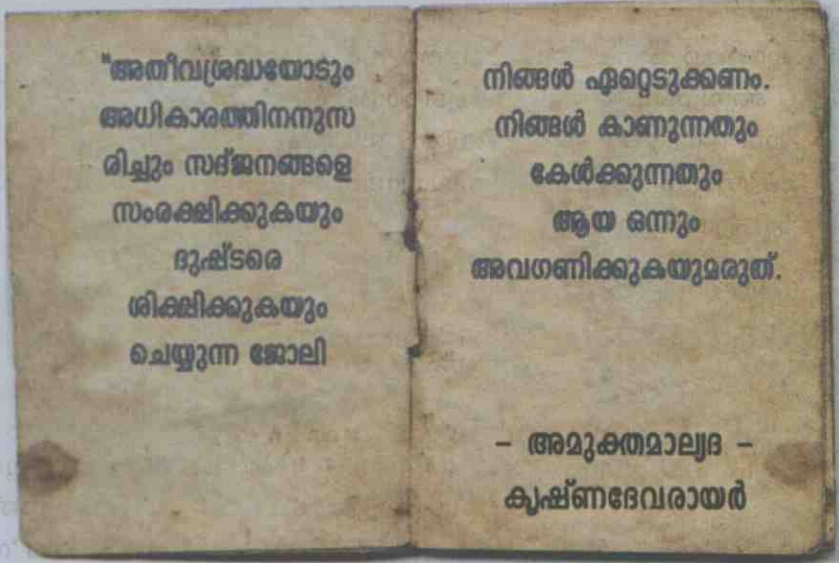 "അതീവശ്രദ്ധയോടും
അധികാരത്തിനനുസ
രിച്ചും സദ്ജനങ്ങളെ
സംരക്ഷിക്കുകയും
ദുഷ്ടരെ
ശിക്ഷിക്കുകയും
ചെയ്യുന്ന ജോലി
നിങ്ങൾ ഏറ്റെടുക്കണം.
നിങ്ങൾ കാണുന്നതും
കേൾക്കുന്നതും
ആയ ഒന്നും
അവഗണിക്കുകയുമരുത്.
– അമുക്തമാല്യദ –
കൃഷ്ണദേവരായർ